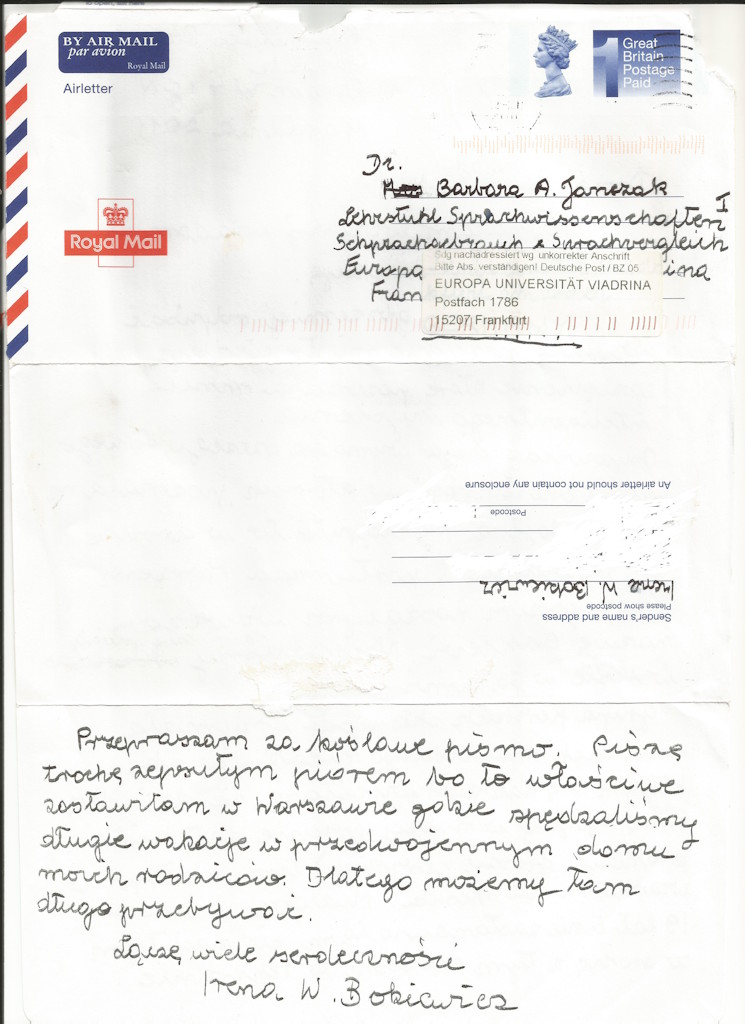 BY AIR MAIL
par avion
Royal Mail
Airletter
1
Great
Britain
Postage
Paid
Royal Mail
Dr.
Barbara A. Janczak
Lehrstuhl Sprachwissenschaften I
& Sprachvergleich
Europa
ina
Fran
Sdg nachadressiert wg. unkorrekter Anschrift
Bitte Abs. verständigen! Deutsche Post / BZ 05
EUROPA UNIVERSITÄT VIADRINA
Postfach 1786
15207 Frankfurt
An airletter should not contain any enclosure
Postcode
Irena W. Bokiewicz
Please show postcode
Sender's name and address
Przepraszam za koślawe pismo. Piszę
trochę zepsutym piórem bo to właściwe
zostawiłam w Warszawie gdzie spędzaliśmy
długie wakacje w przedwojennym domu
moich rodziców. Dlatego możemy tam
długo przebywać.
Łączę wiele serdeczności
Irena W. Bokiewicz